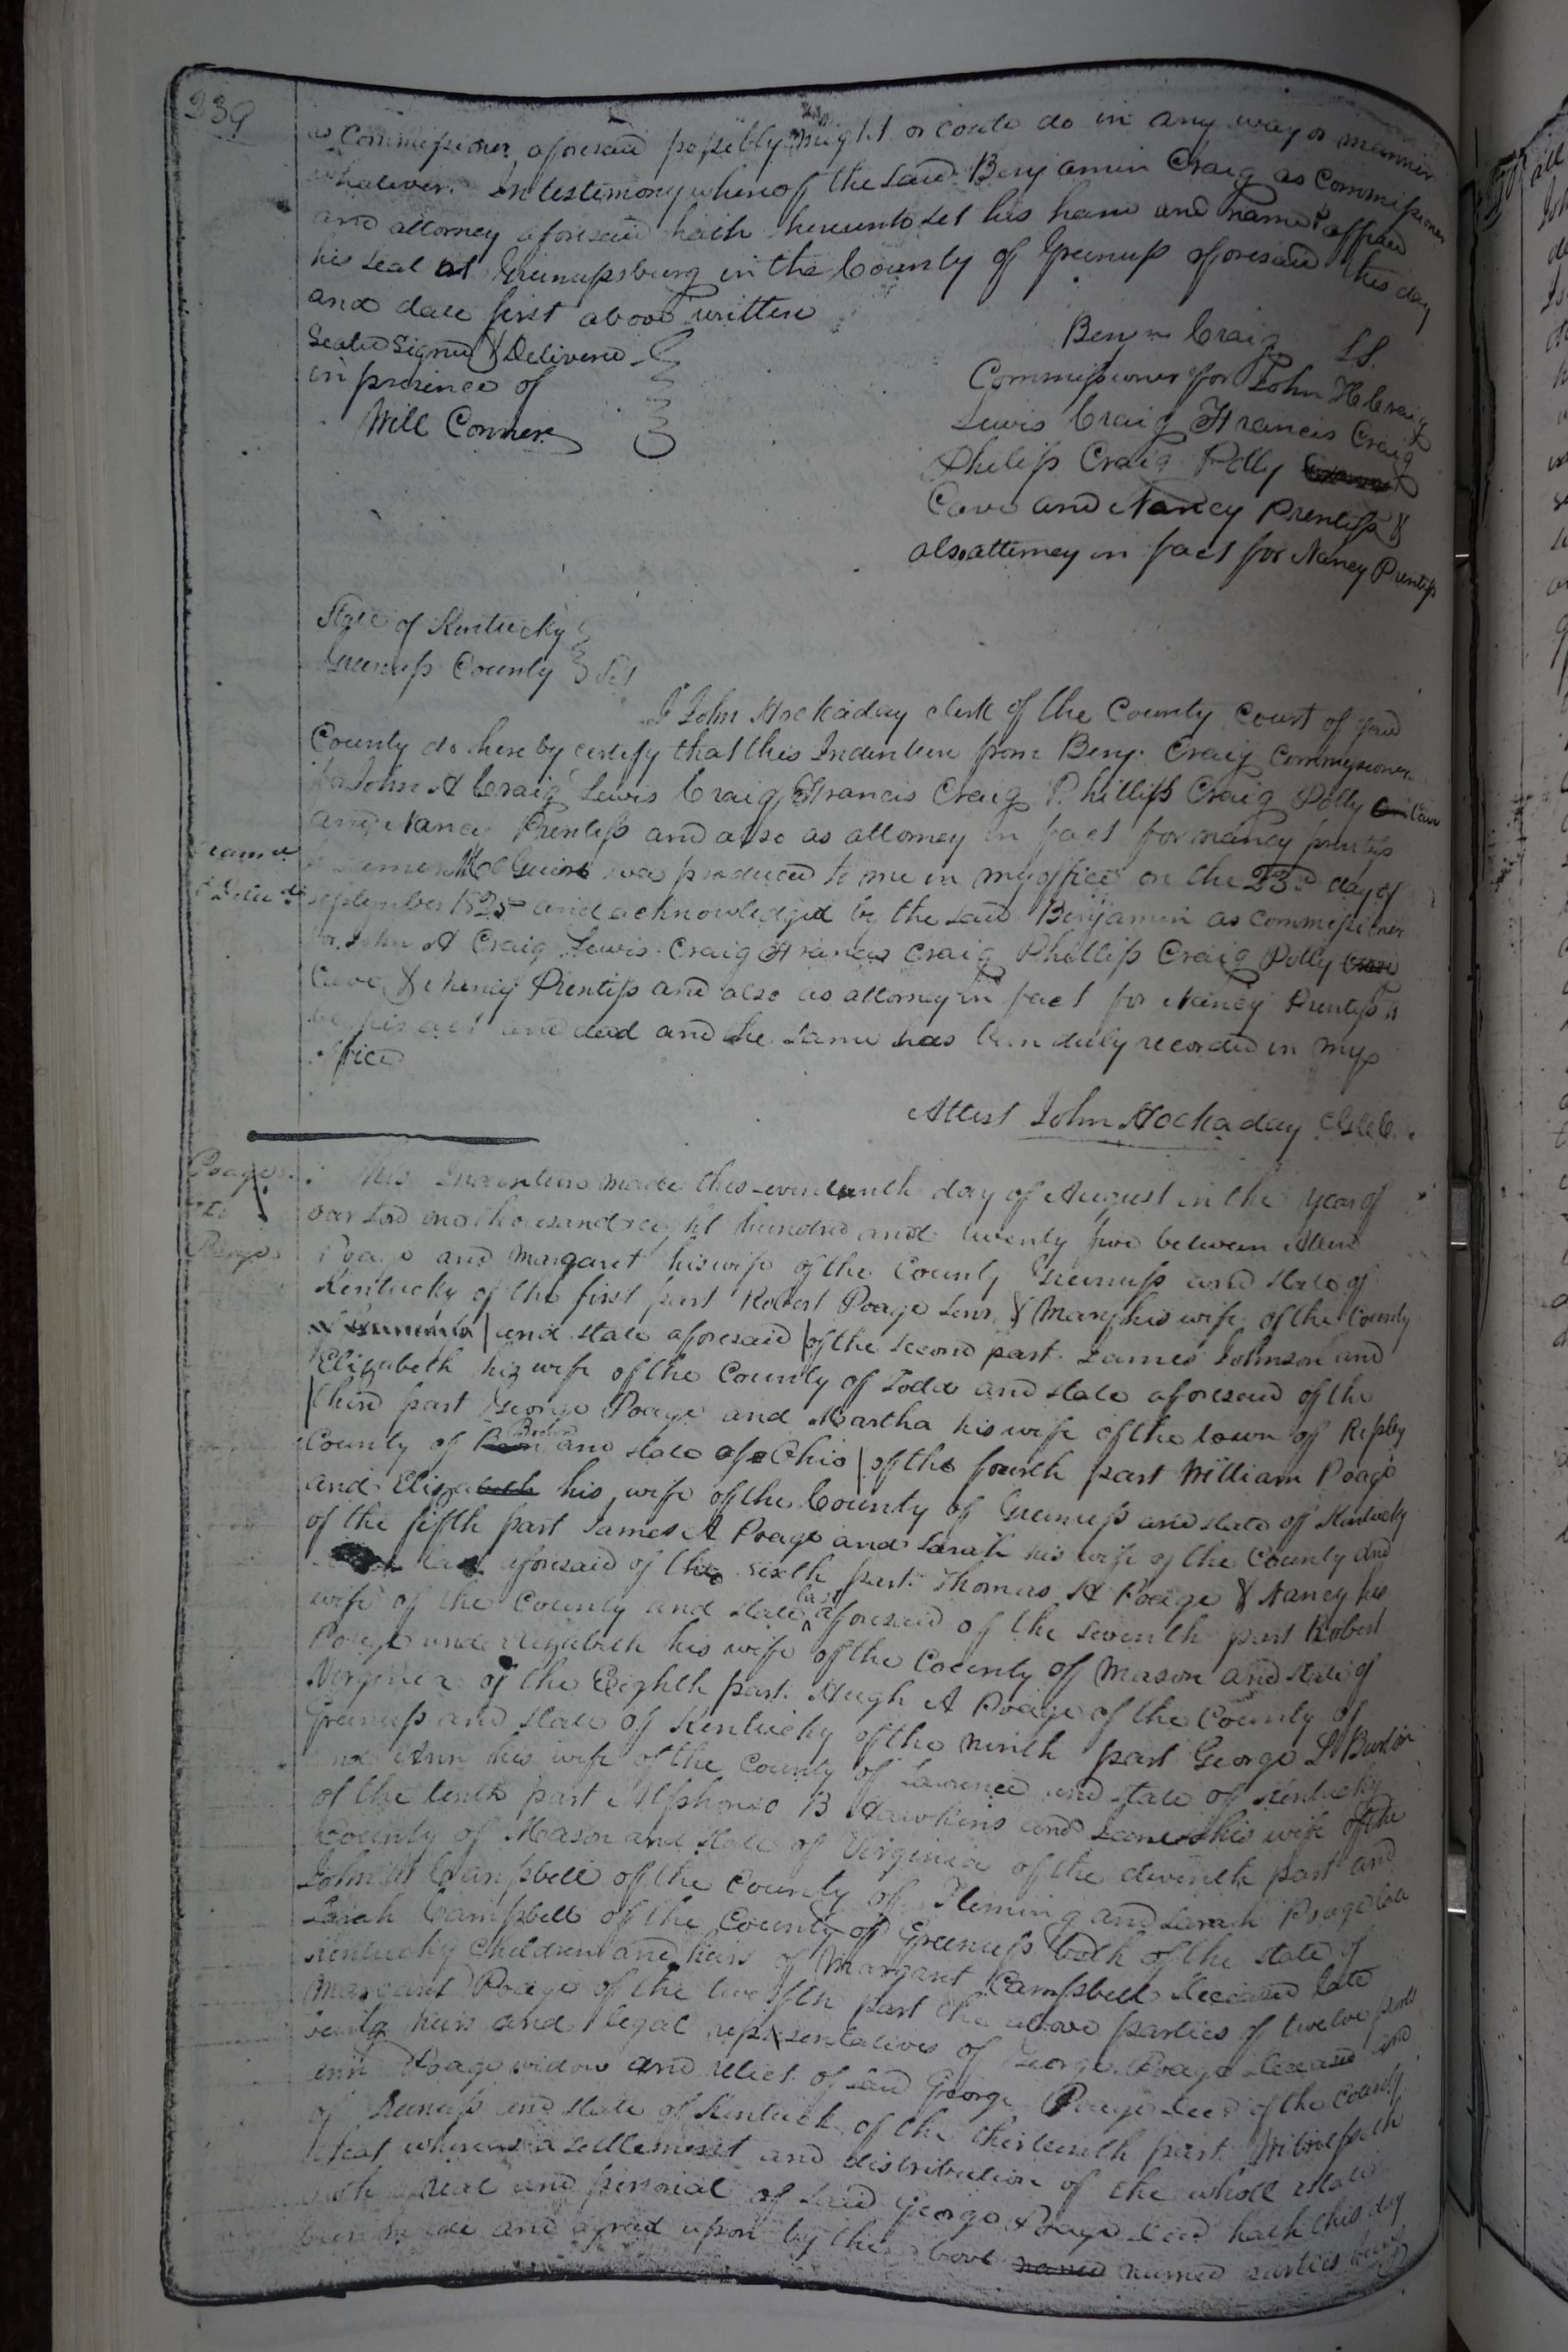 239
as Commissioner aforesaid possibly might or could do in any way or manner
whatever. In testimony whereof the said Benjamin Craig as Commissioner
and attorney aforesaid hath hereunto set his hand and name & affixed
his seal at Greenupsburg in the County of Greenup aforesaid this day
and date first above written
Sealed Signed & Delivered
in presence of
Will Conner
Benjn Craig LS.
Commissioner for John H Craig
Lewis Craig Francis Craig
Philip Craig Polly
Cave and Nancy Prentiss &
also attorney in fact for Nancy Prentiss
State of Kentucky
Greenup County Sct
I John Hockaday clerk of the County Court of said
County do here by certify that this Indenture from Benj. Craig Commissioner
for John A Craig Lewis Craig Francis Craig Phillip Craig Polly Cave
and Nancy Prentiss and also as attorney in fact for nancy prentiss
to James McGuire was produced to me in my office on the 23rd day of
september 1825 and acknowledged by the said Benjamin as commissioner
for John A Craig Lewis Craig Francis Craig Phillip Craig Polly
Cave & Nancy Prentiss and also as attorney in fact for Nancy Prentiss to
be his act and deed and the same has been duly recorded in my
office
Attest John Hockaday C.G.C.C.
Poages
to
Poage
This Indenture made this seventeenth day of August in the year of
our Lord one thousand eight hundred and twenty five between Allen
Poage and Margaret his wife of the County Greenup and state of
Kentucky of the first part Robert Poage Senr. & Mary his wife of the County
and state aforesaid of the second part. James Johnson and
Elizabeth his wife of the County of Todd and state aforesaid of the
third part George Poage and Martha his wife of the town of Ripley
County of Brown and state of Ohio of the fourth part William Poage
and Eliza his wife of the County of Greenup and state of Kentucky
of the fifth part James A Poage and Sarah his wife of the County and
last aforesaid of the sixth part. Thomas H Poage & Nancy his
wife of the County and state last aforesaid of the seventh part Robert
Poage and Elizabeth his wife of the County of Mason and state of
Virginia of the Eighth part. Hugh A Poage of the County of
Greenup and state of Kentucky of the ninth part George
and Ann his wife of the County of Lawrence and state of Kentucky
of the tenth part Alphonso B Hawkins and Jane his wife of the
County of Mason and state of Virginia of the eleventh part and
John Campbell of the County of Fleming and Sarah Poage late
Sarah Campbell of the County of Greenup both of the state of
Kentucky Children and heirs of Margaret Campbell deceased late
Margaret Poage of the twelfth part the above parties of twelve parts
being heirs and legal representatives of George Poage deceased and
Ann Poage widow and relict of said George Poage decd of the County
of Greenup and state of Kentuck of the thirteenth part. Witnesseth
that whereas a settlement and distribution of the whole estate
both real and personal of said George Poage decd hath this day
been made and agreed upon by the above named named parties